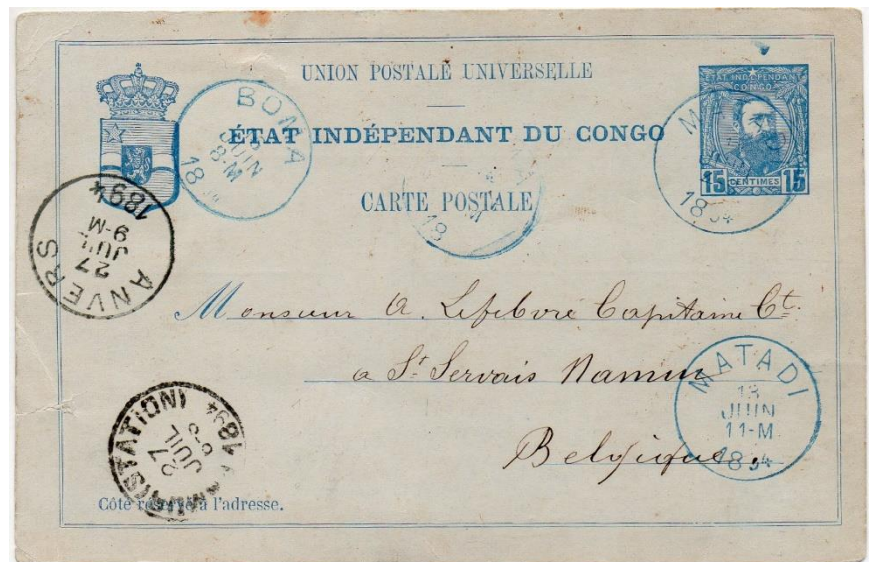 UNION POSTALE UNIVERSELLE
ÉTAT INDÉPENDANT DU CONGO
CARTE POSTALE
ÉTAT INDÉPENDANT
DU CONGO
15 CENTIMES 15
BOMA
JUIN
8-M
18 94
18 94
18
ANVERS
27
JUIL
9-M
1894
Monsieur A. Lefebvre Capitaine Ct.
a St Servais Namur
Belgique.
MATADI
13
JUIN
11-M
1894
(STATION)
27
JUIL
1894
Côté réservé à l'adresse.